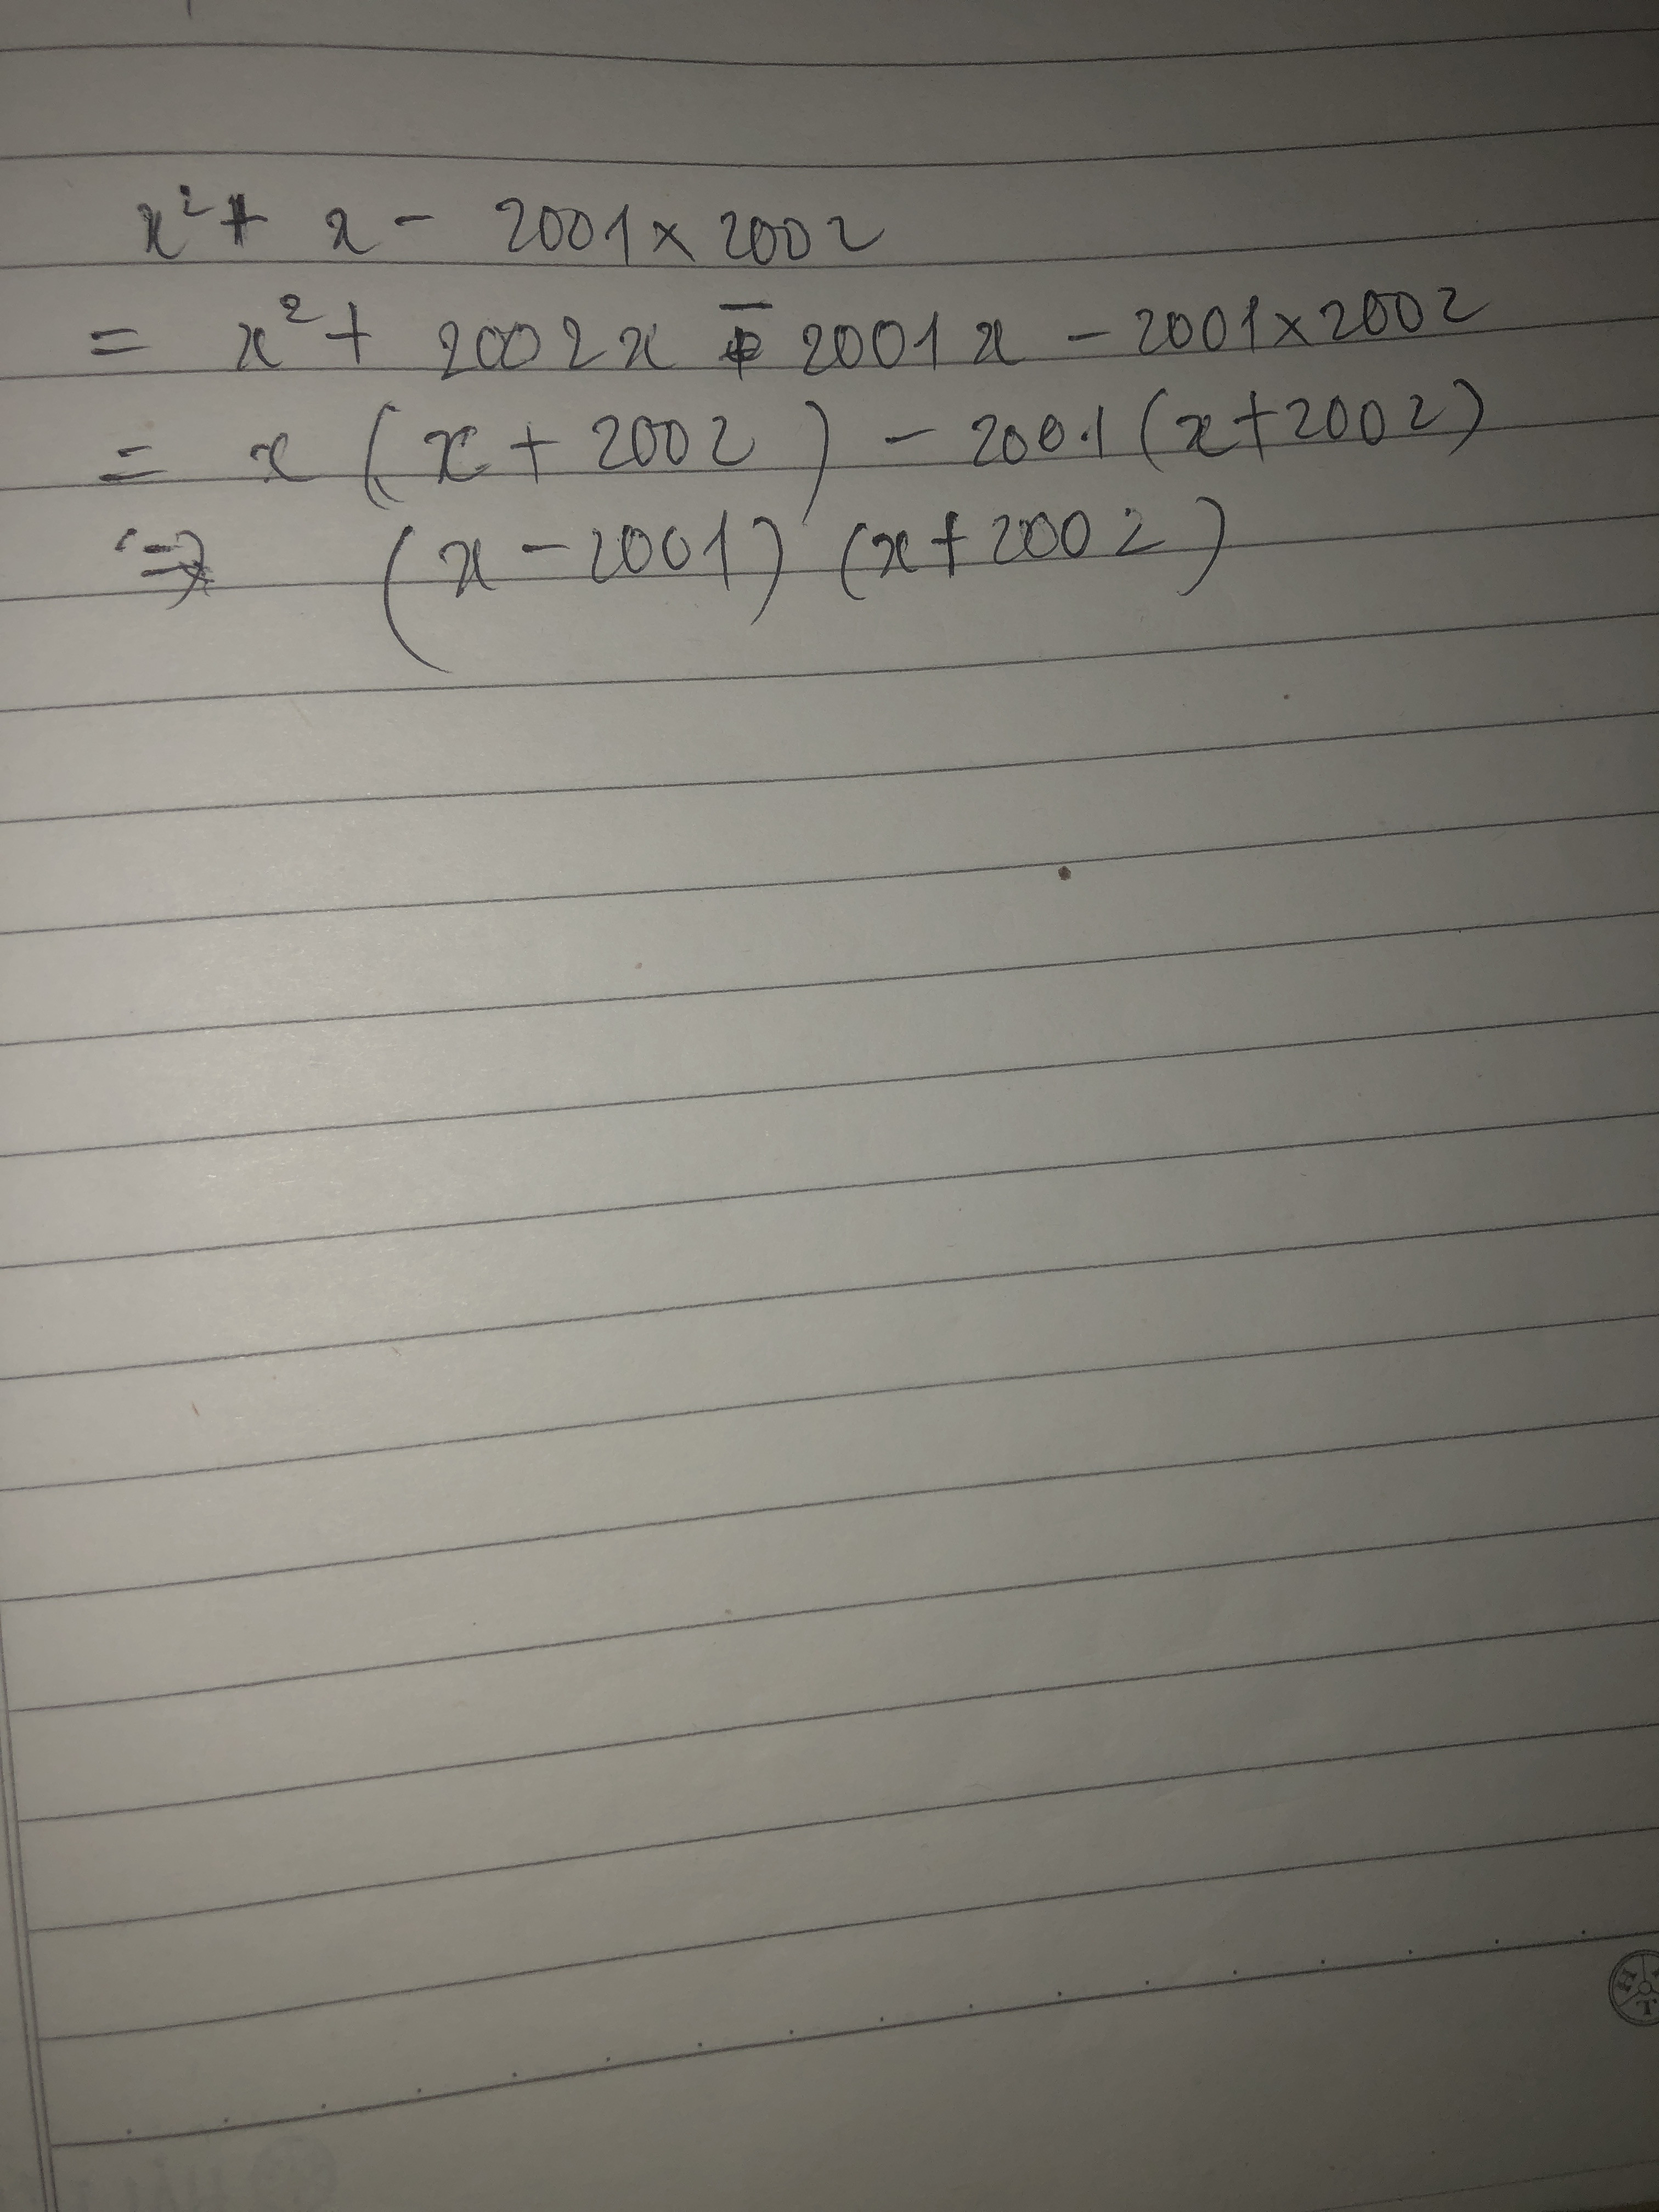 x² + x - 2001 × 2002
= x² + 2002x - 2001x - 2001×2002
= x (x + 2002) - 2001 (x+2002)
=> (x - 2001) (x + 2002)